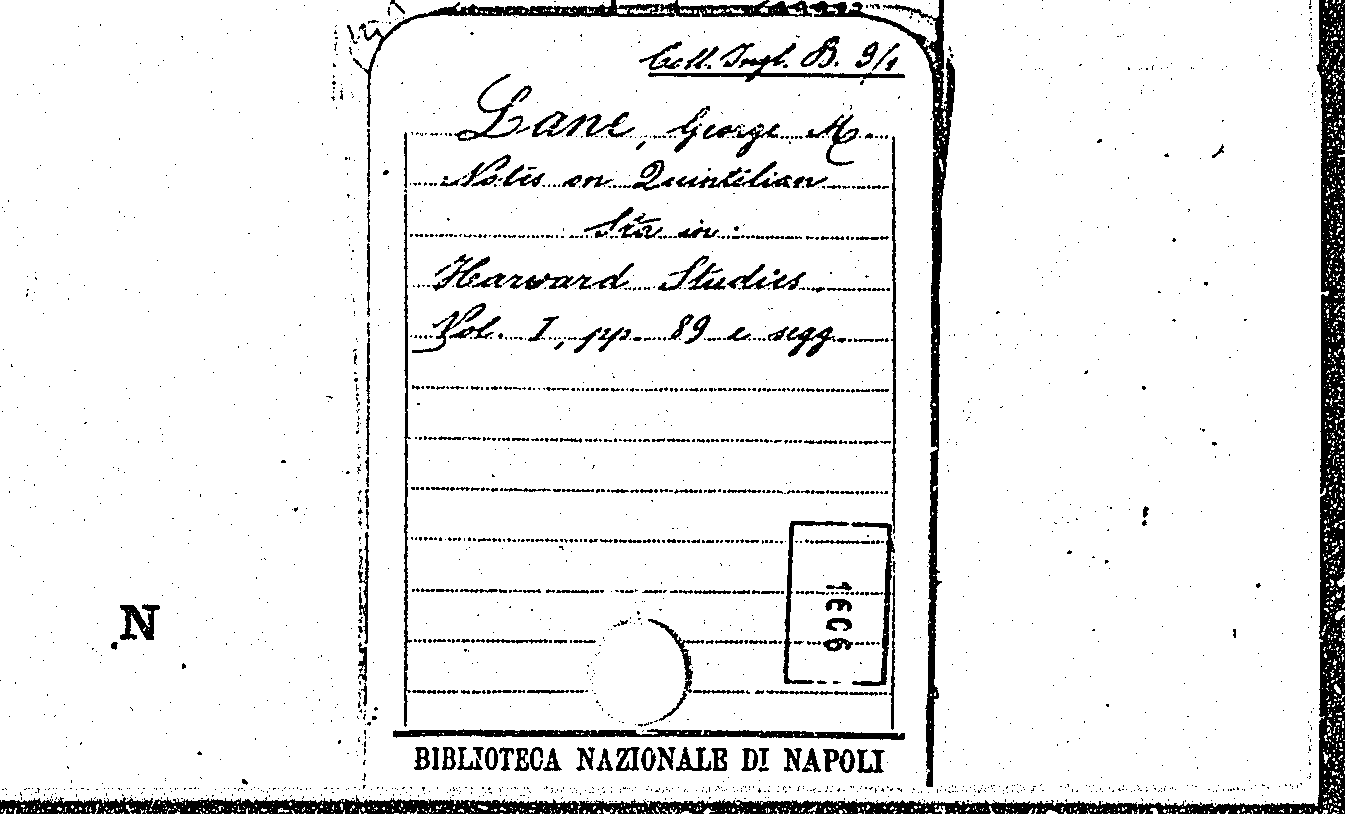 Coll. Ingl. B. 9/1
Lane, George M.
Notes on Quintilian
Sta in:
Harward Studies.
Vol. I, pp. 89 e segg.
N
BIBLIOTECA NAZIONALE DI NAPOLI